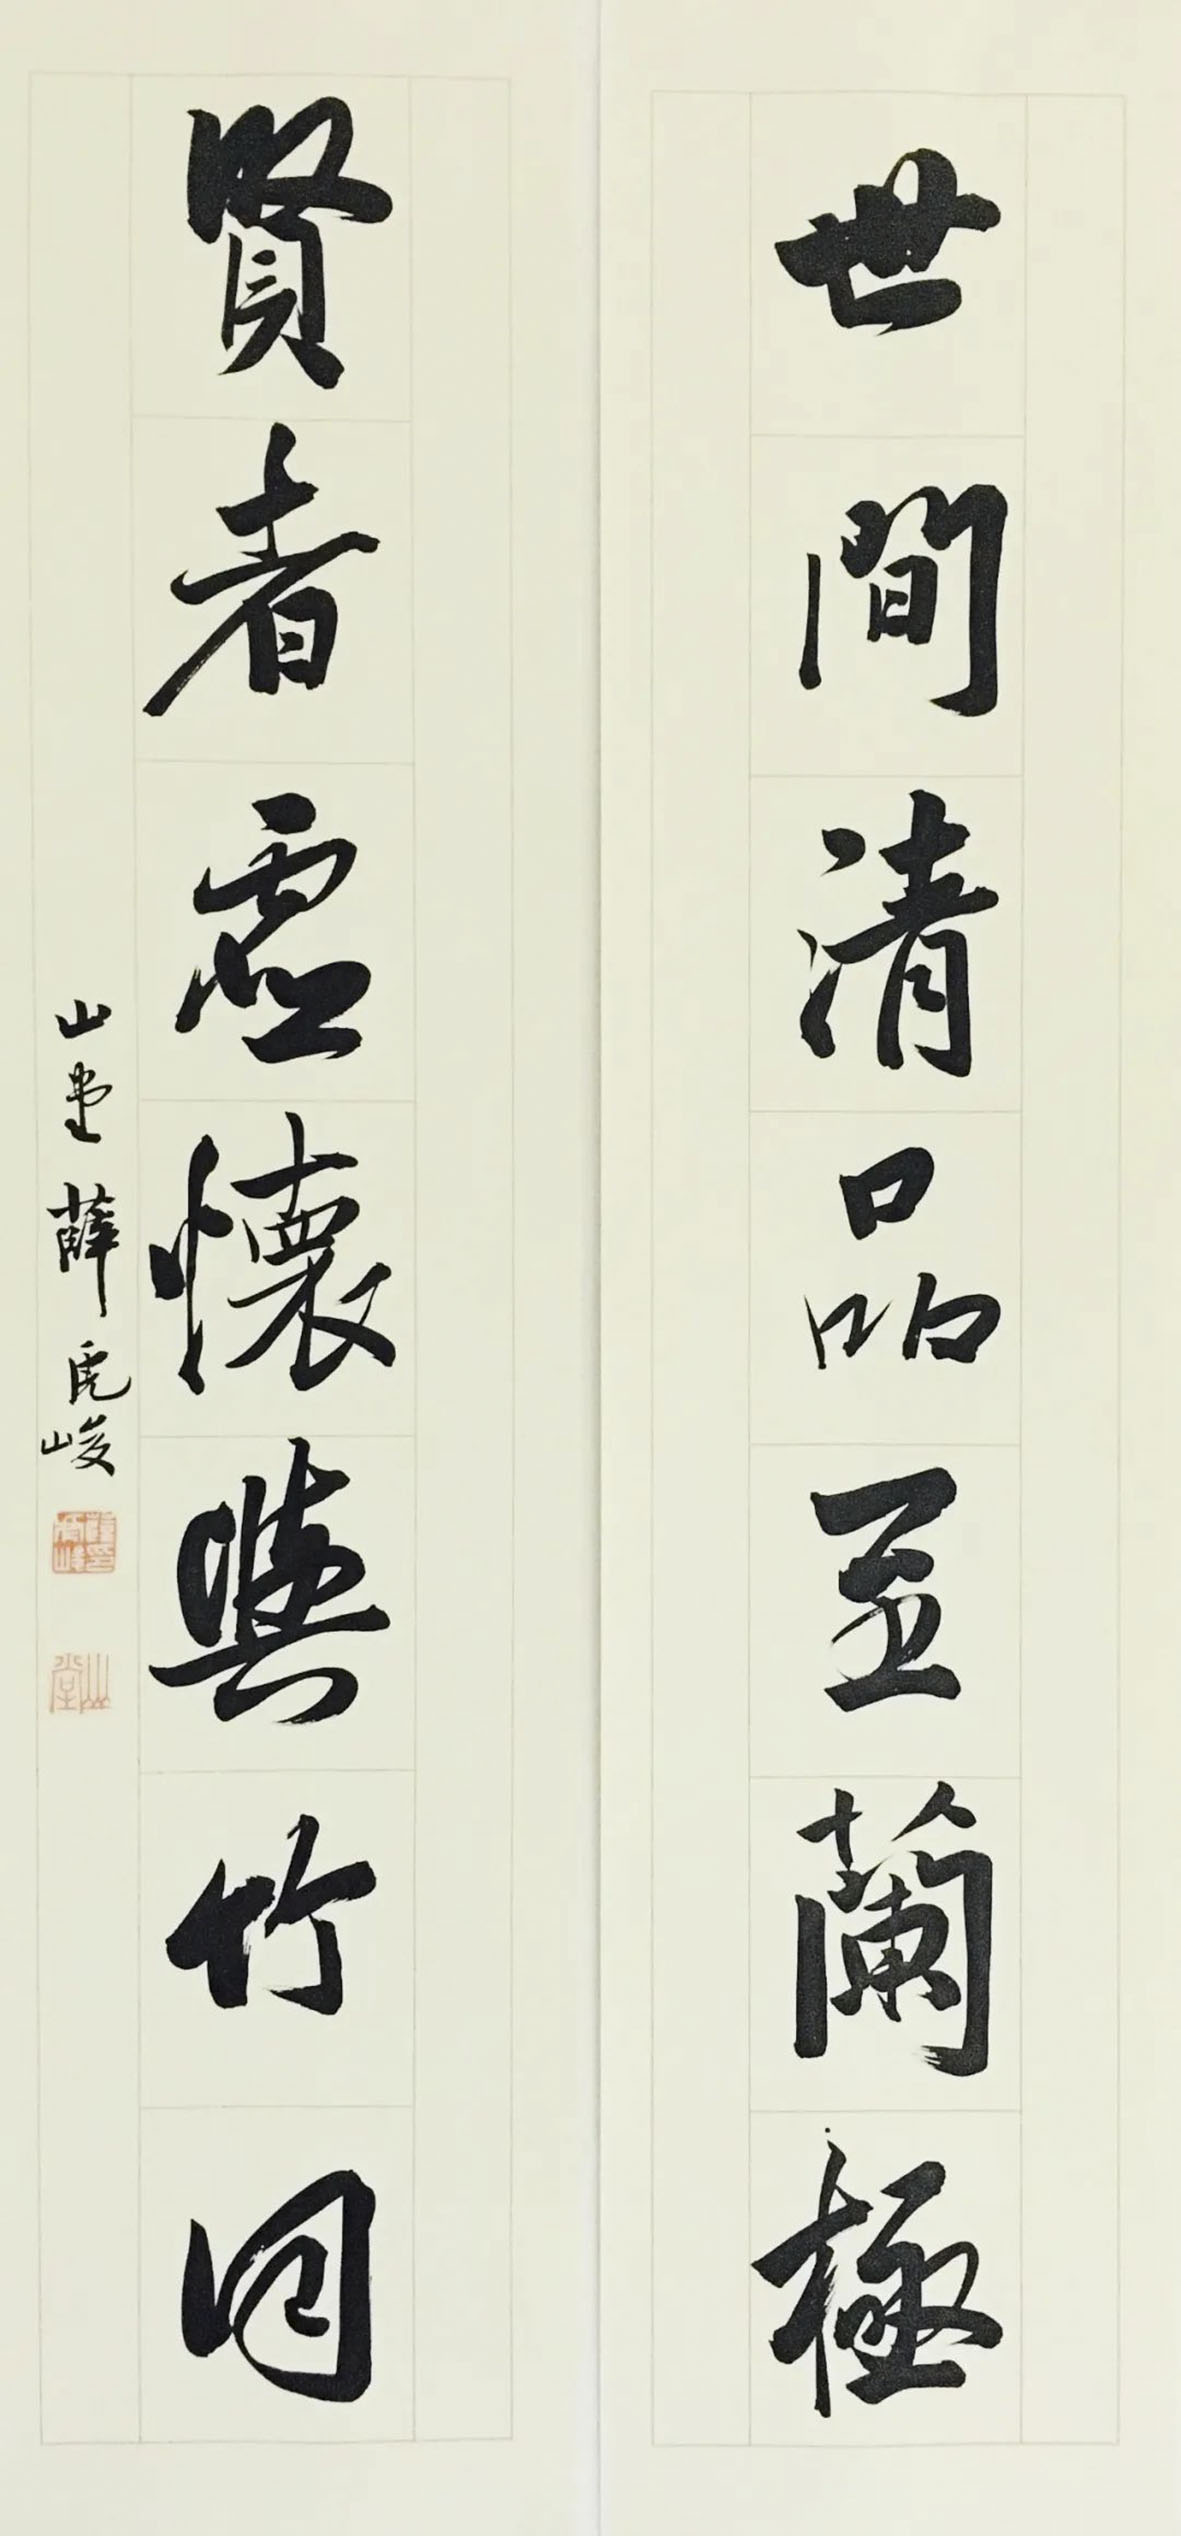 世間清品至蘭極
賢者虛懷與竹同
山堂薛虎峻
山堂